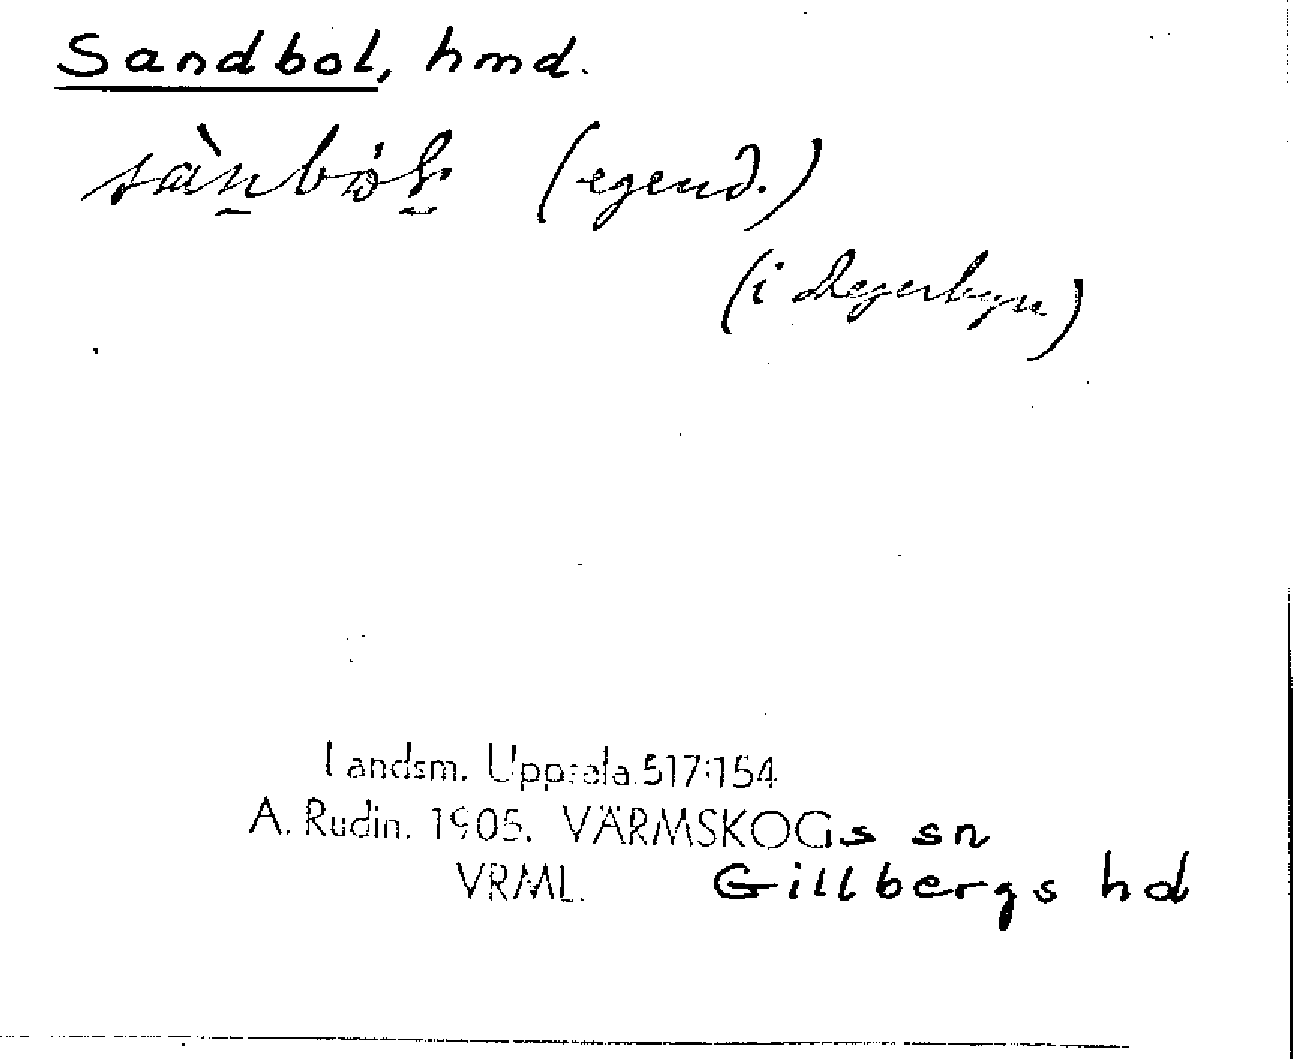 Sandbol, hmd.
sànbòl (egend.)
(i Degerbyn)
Landsm. Uppsala 517:154
A. Rudin. 1905. VÄRMSKOGs sn
VRML. Gillbergs hd